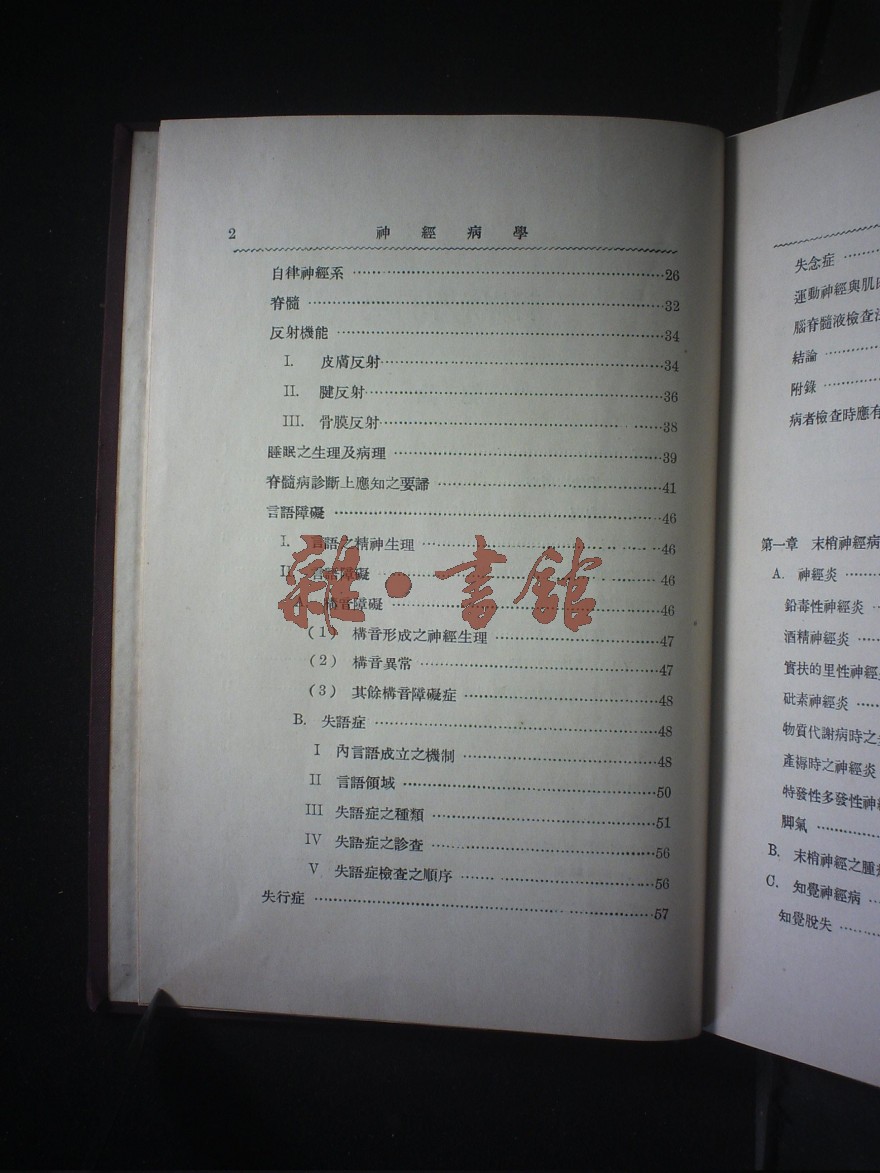 2 神經病學
自律神經系 26
脊髓 32
反射機能 34
I. 皮膚反射 34
II. 腱反射 36
III. 骨膜反射 38
睡眠之生理及病理 39
脊髓病診斷上應知之要諦 41
言語障礙 46
I. 言語之精神生理 46
II. 言語障礙 46
A. 構音障礙 46
(1) 構音形成之神經生理 47
(2) 構音異常 47
(3) 其餘構音障礙症 48
B. 失語症 48
I 內言語成立之機制 48
II 言語領域 50
III 失語症之種類 51
IV 失語症之診查 56
V 失語症檢查之順序 56
失行症 57
雜·書館
失念症
運動神經與肌
腦脊髓液檢查
結論
附錄
病者檢查時應有
第一章 末梢神經病
A. 神經炎
鉛毒性神經炎
酒精神經炎
實扶的里性神經
砒素神經炎
物質代謝病時之
產褥時之神經炎
特發性多發性神
脚氣
B. 末梢神經之腫
C. 知覺神經病
知覺脫失